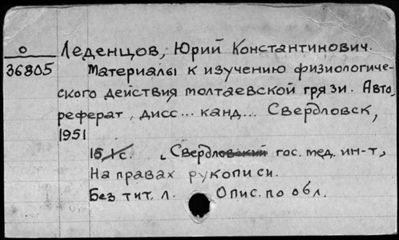 О Леденцов, Юрий Константинович.
36805 Материалы к изучению физиологиче-
ского действия молтаевской грязи. Авто-
реферат, дисс... канд... Свердловск,
1951
15, 1с. „Свердловский гос. мед. ин-т„
На правах рукописи.
Без тит. л. Опис. по обл.